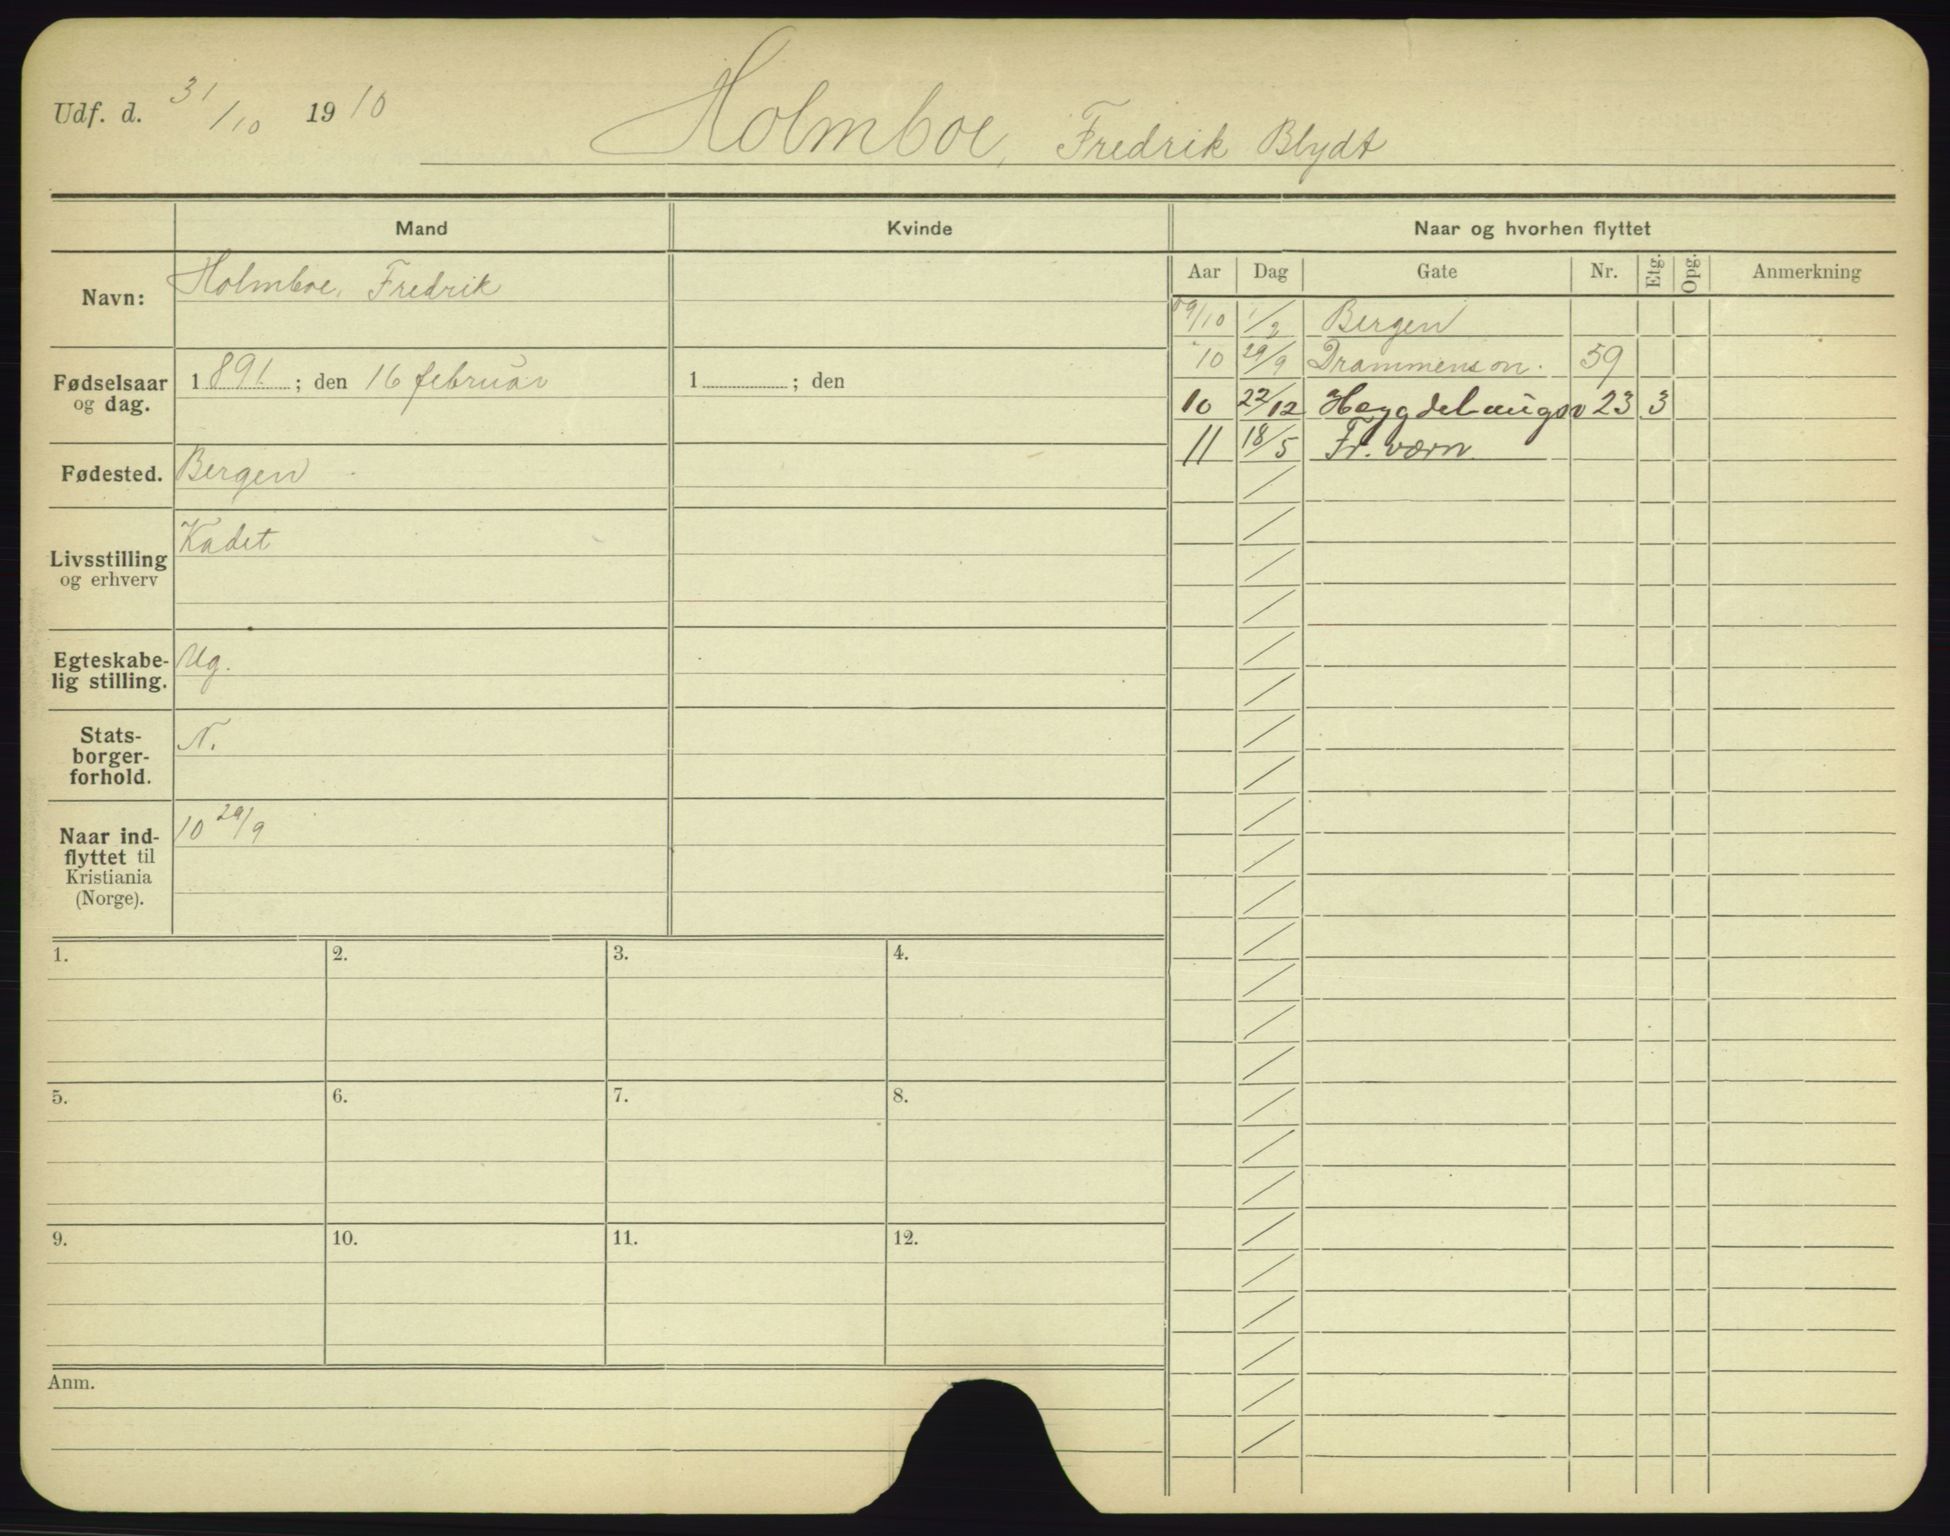 Udf. d. 31/10 1910
Holmboe, Fredrik Blydt
Mand Kvinde Naar og hvorhen flyttet
Aar Dag Gate Nr. Etg. Opg. Anmerkning
Navn: Holmboe, Fredrik
Fødselsaar og dag. 1891. ; den 16 februar 1 ; den
Fødested. Bergen
Livsstilling og erhverv Kadet
Egteskabe-
lig stilling. Ug.
Stats-
borger-
forhold. N.
Naar ind-
flyttet til
Kristiania
(Norge). 10 29/9
09/10 1/2 Bergen
10 29/9 Drammensvn. 59
10 22/12 Hægdehaugsv 23 3
11 18/5 Fr. værn
1. 2. 3. 4.
5. 6. 7. 8.
9. 10. 11. 12.
Anm.